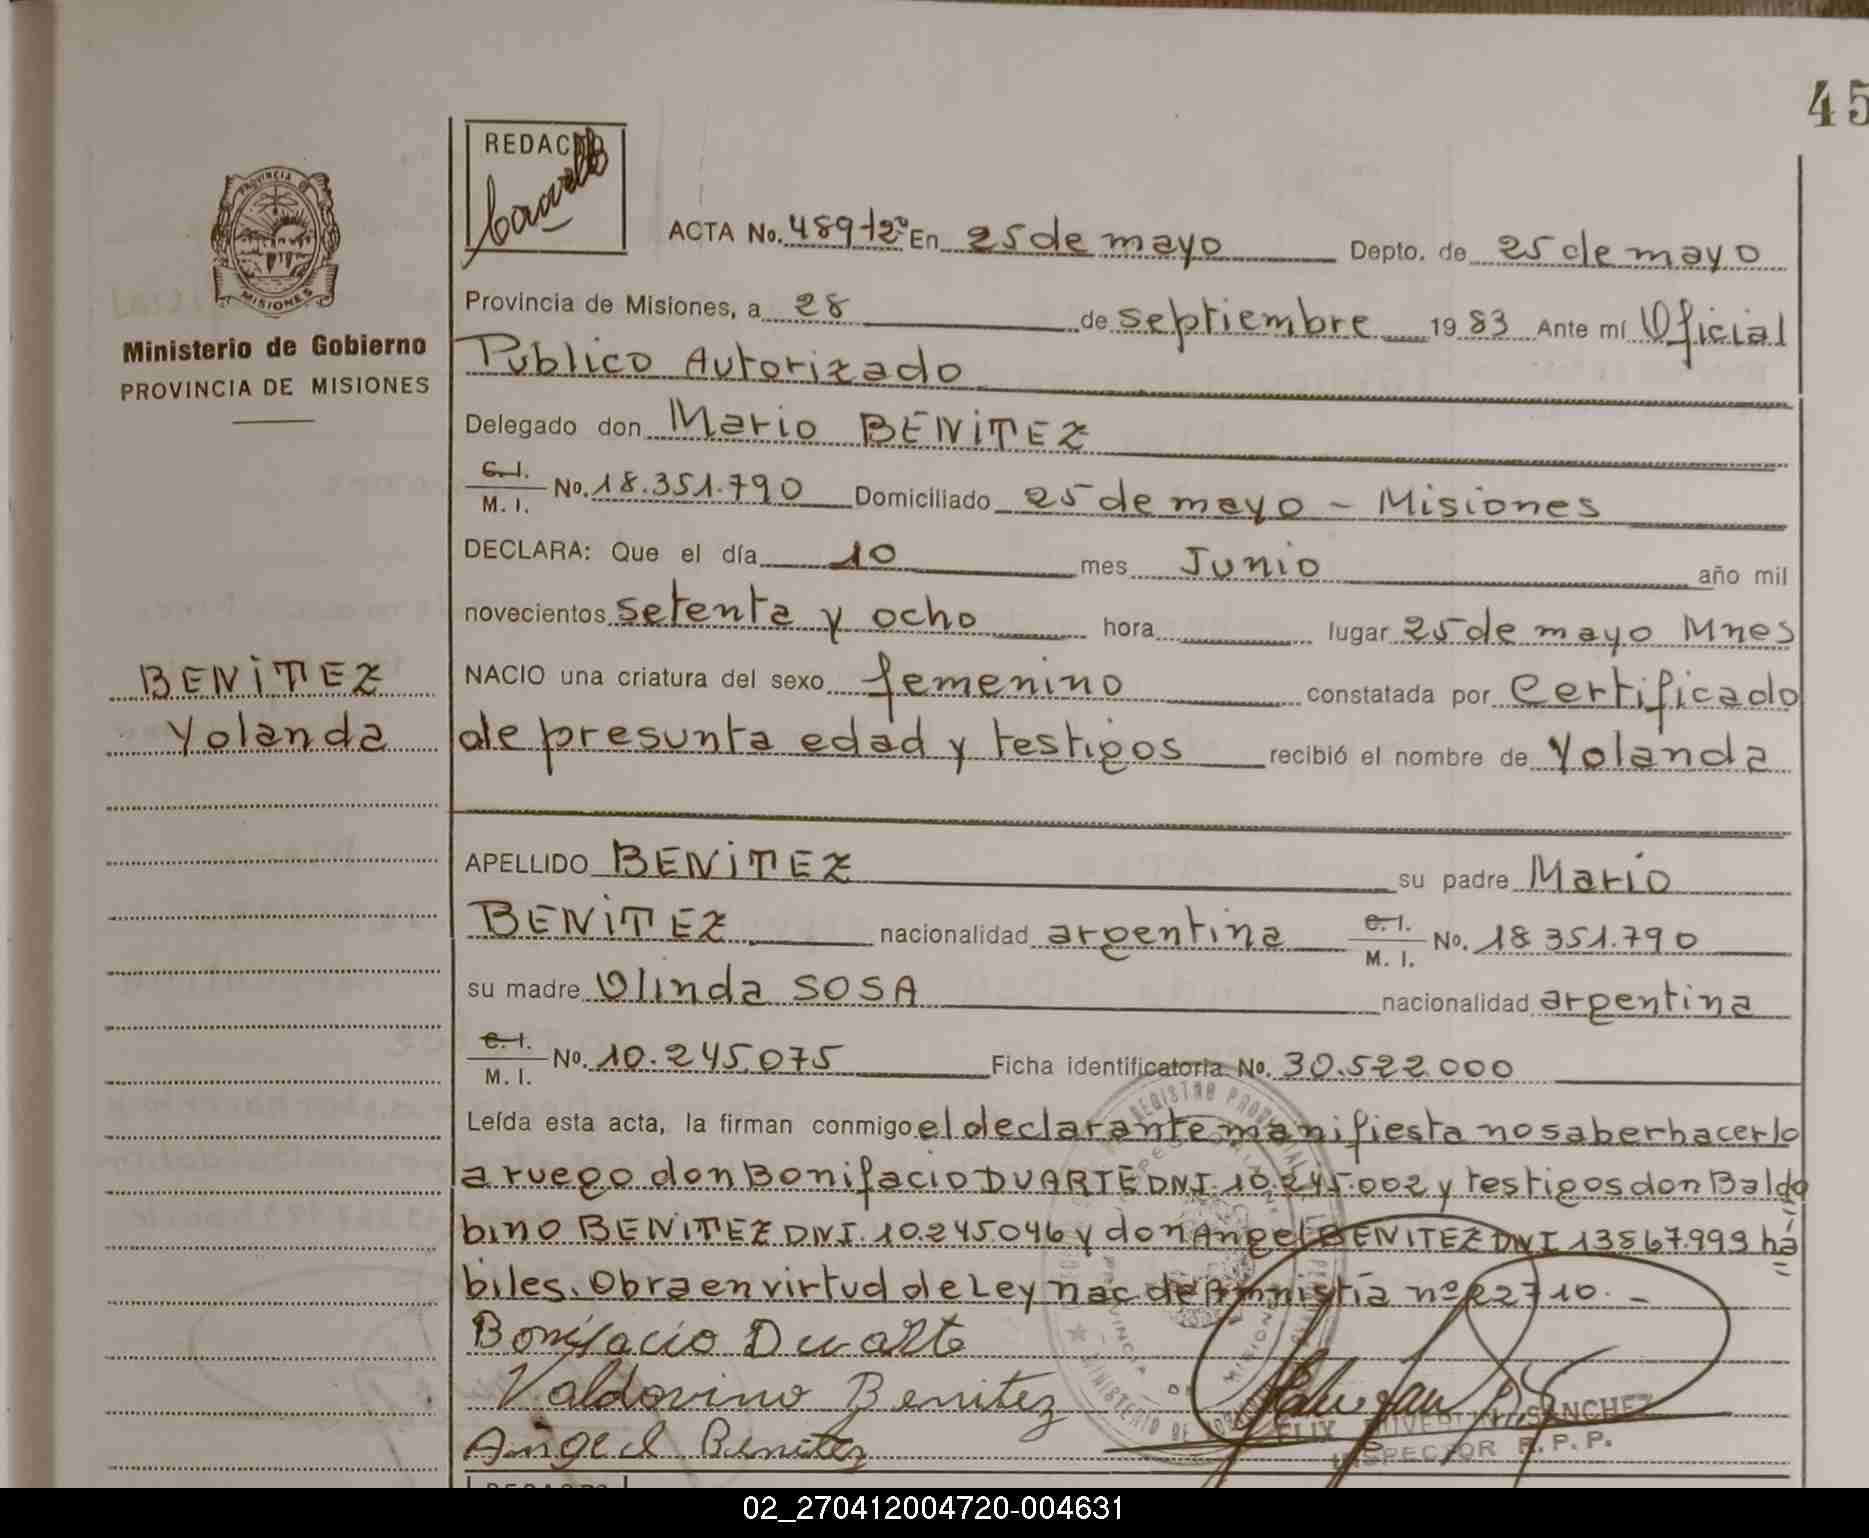 45
REDACTO
PROVINCIA D
MISIONES
Ministerio de Gobierno
PROVINCIA DE MISIONES
ACTA No. 489-t2º En 25 de mayo Depto. de 25 de mayo
Provincia de Misiones, a 28 de septiembre 1983 Ante mí Oficial
Publico Autorizado
Delegado don Mario BENiTEZ
C. I. / M. I. No. 18.351.790 Domiciliado 25 de mayo - Misiones
DECLARA: Que el día 10 mes Junio año mil
novecientos setenta y ocho hora lugar 25 de mayo Mnes
BENiTEZ
Yolanda
NACIO una criatura del sexo femenino constatada por Certificado
de presunta edad y testigos recibió el nombre de Yolanda
APELLIDO BENiTEZ su padre Mario
BENiTEZ nacionalidad argentina C. I. / M. I. No. 18 351.790
su madre Olinda SOSA nacionalidad argentina
C. I. / M. I. No. 10.245.075 Ficha identificatoria No. 30.522.000
Leída esta acta, la firman conmigo el declarante manifiesta no saber hacerlo
a ruego don Bonifacio DUARTE DNI. 10.245.002 y testigos don Baldo
bino BENITEZ DNI. 10.245.046 y don Angel BENITEZ DNI 13867.999 há
biles. Obra en virtud de Ley nac de Amnistía nº 22710. -
Bonifacio Duarte
Valdovino Benitez
Angel Benitez
SANCHEZ
INSPECTOR R. P. P.
02_270412004720-004631